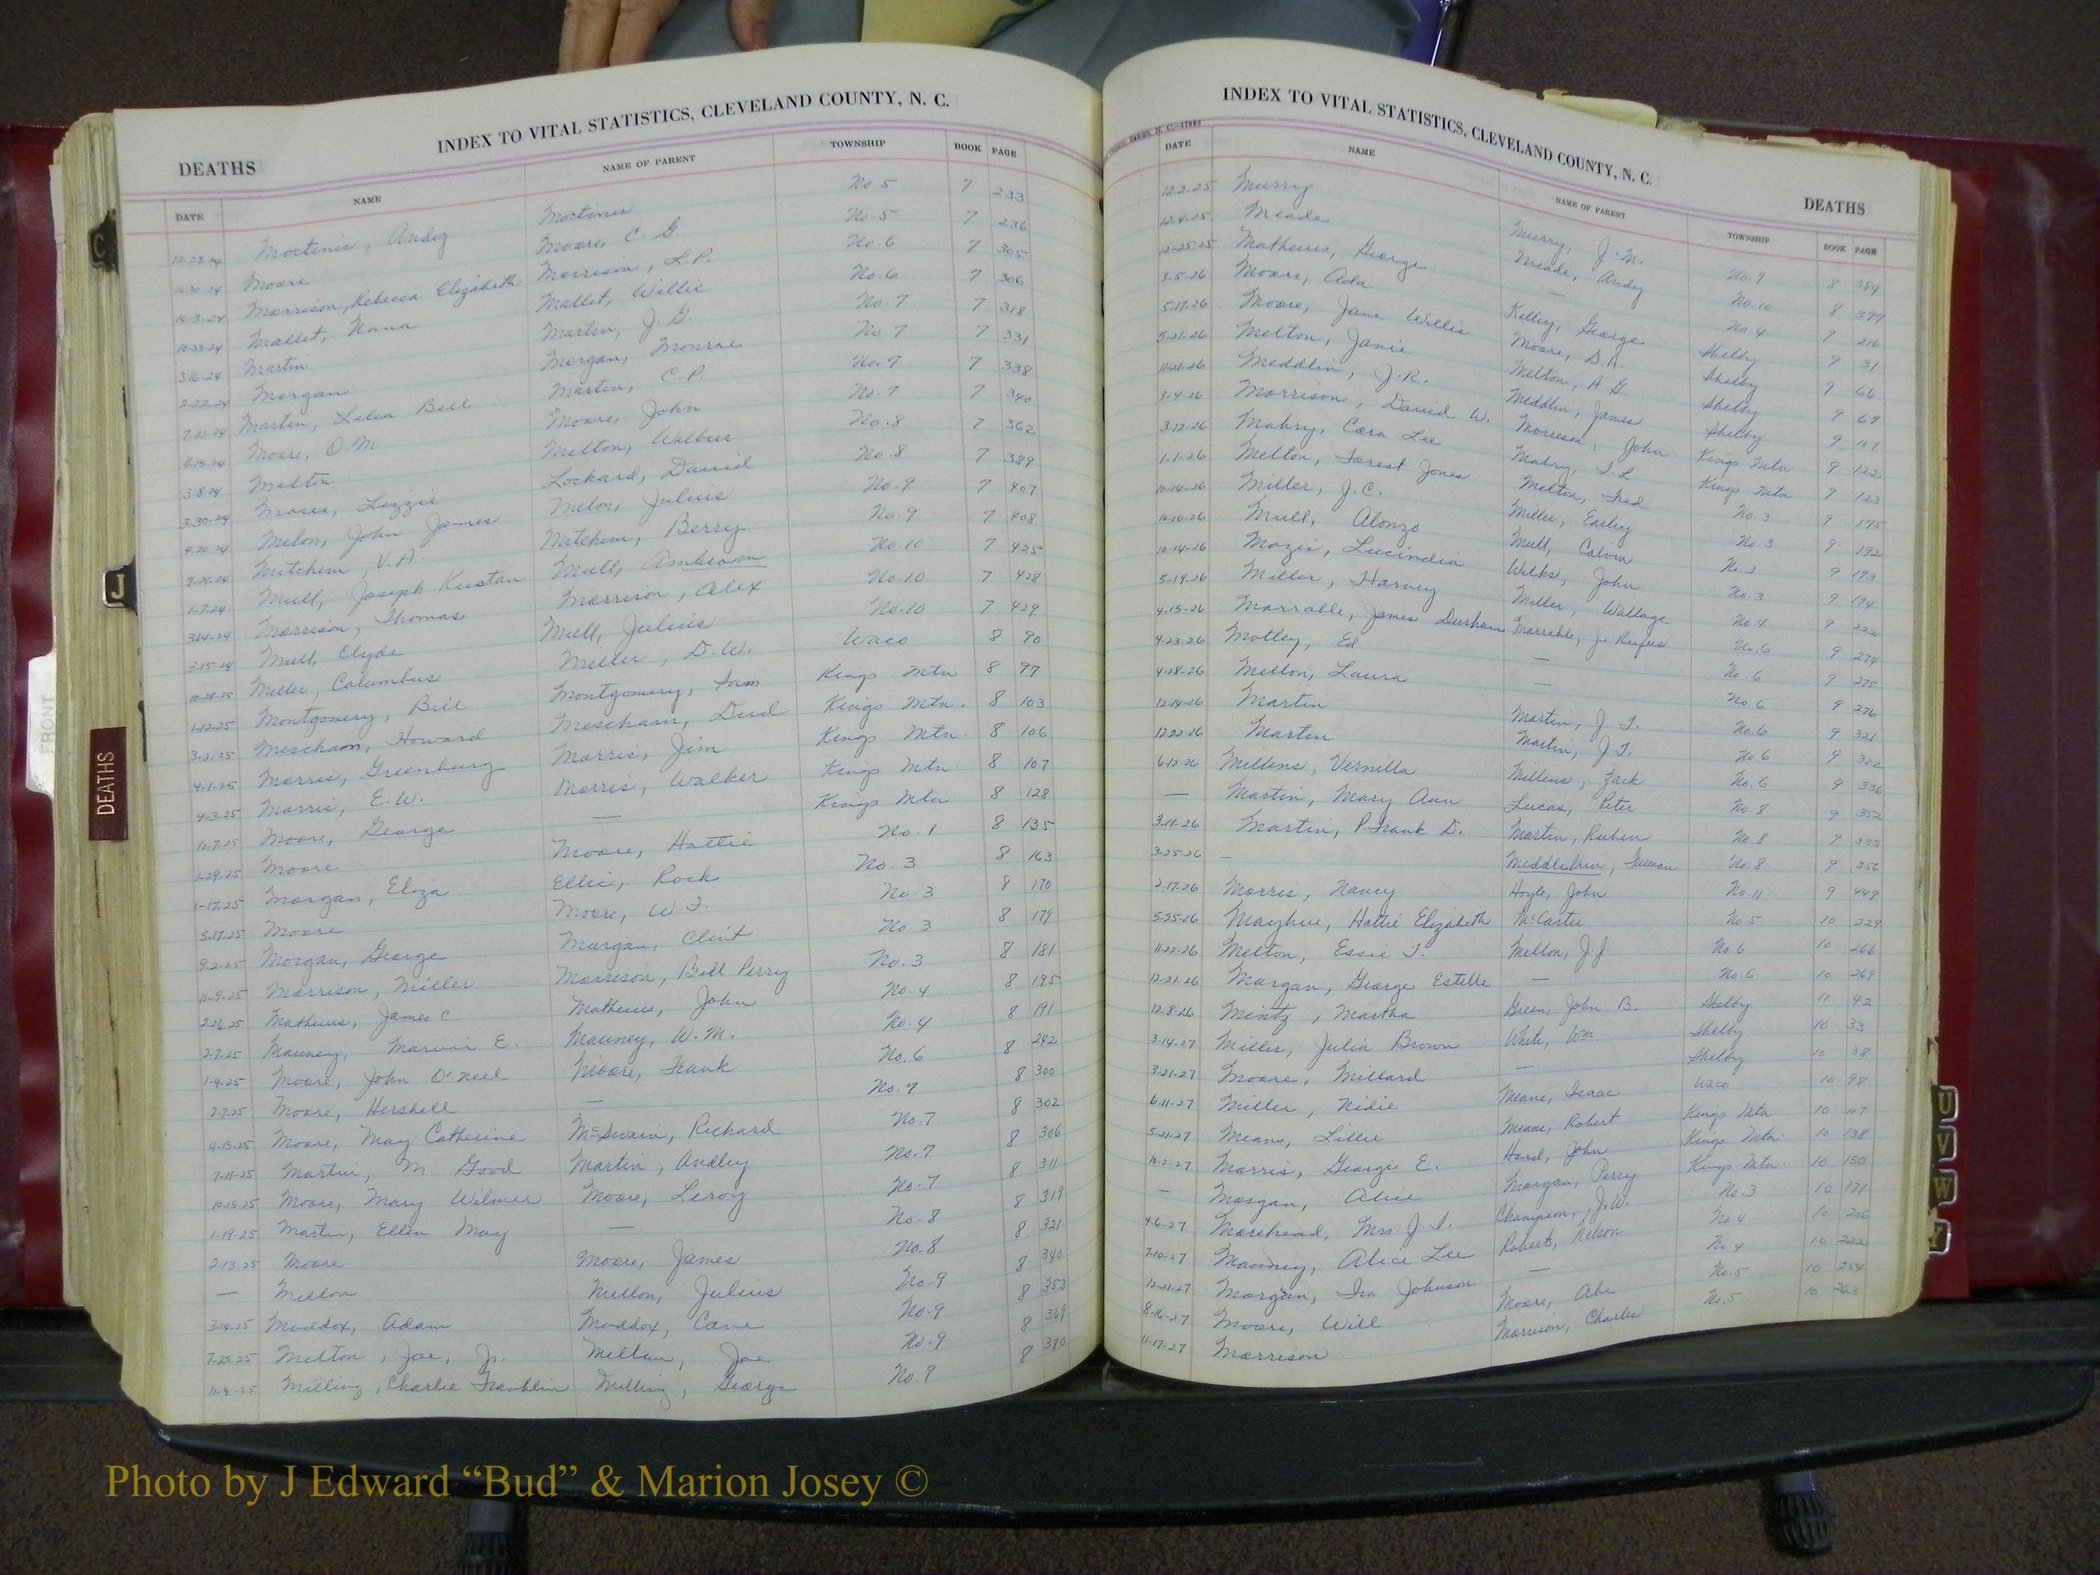 INDEX TO VITAL STATISTICS, CLEVELAND COUNTY, N. C.
DEATHS
DATE NAME NAME OF PARENT TOWNSHIP BOOK PAGE
Andy No 5 7 233
Moore Moore, C. G. No. 5 7 236
10-3-24 Morrison, Rebecca Elizabeth Morrison, L.P. No. 6 7 305
10-23-24 Mallet, Nana Mallet, Willie No. 6 7 306
3-16-24 Martin Martin, J. G. No. 7 7 318
2-22-24 Morgan Morgan, Monroe No. 7 7 331
7-21-24 Martin, Lelia Bell Martin, C. P. No. 7 7 338
11-15-24 Moore, O.M. Moore, John No. 7 7 340
3-8-24 Melton Melton, Wilbur No. 8 7 362
3-30-24 Moses, Lizzie Lockard, David No. 8 7 389
4-20-24 Melon, John James Melon, Julius No. 9 7 407
7-26-24 Mitchem, V.A Mitchem, Berry No. 9 7 408
1-7-24 Mull, Joseph Kustan Mull, Ambrom No. 10 7 425
3-14-24 Morrison, Thomas Morrison, Alex No. 10 7 428
2-15-24 Mull, Clyde Mull, Julius No. 10 7 429
10-28-25 Miller, Columbus Miller, D.W. Waco 8 90
1-12-25 Montgomery, Bill Montgomery, Sam Kings Mtn 8 97
3-2-25 Mescham, Howard Mescham, Dud Kings Mtn. 8 103
4-1-25 Morris, Greenburg Morris, Jim Kings Mtn. 8 106
4-3-25 Morris, E.W. Morris, Walker Kings Mtn. 8 107
10-7-25 Moore, George — Kings Mtn 8 128
1-29-25 Moore Moore, Hattie No. 1 8 135
1-17-25 Morgan, Eliza Ellis, Rock No. 3 8 163
5-17-25 Moore Moore, W.F. No 3 8 170
9-2-25 Morgan, George Morgan, Clint No. 3 8 179
11-9-25 Morrison, Miller Morrison, Bill Perry No. 3 8 181
2-26-25 Mathews, James C Mathews, John No. 4 8 195
2-7-25 Mauney, Marvin E. Mauney, W.M. No. 4 8 191
1-4-25 Moore, John O'Neel Moore, Frank No. 6 8 242
2-7-25 Moore, Hershell — No. 7 8 300
4-15-25 Moore, May Catherine McSwain, Richard No. 7 8 302
7-11-25 Martin, M. Good Martin, Audley No. 7 8 306
10-15-25 Moore, Mary Wilmer Moore, Leroy No. 7 8 311
1-19-25 Martin, Ellen May — No. 8 8 319
2-13-25 Moore Moore, James No. 8 8 321
— Mellon Mellon, Julius No. 9 8 340
3-14-25 Maddox, Adam Maddox, Cane No. 9 8 353
7-25-25 Melton, Joe, Jr. Melton, Joe No. 9 8 369
11-4-25 Milling, Charlie Franklin Milling, George No. 9 8 380
INDEX TO VITAL STATISTICS, CLEVELAND COUNTY, N. C.
DEATHS
DATE NAME NAME OF PARENT TOWNSHIP BOOK PAGE
12-2-25 Murry Murry, J. M. No. 9 8 384
12-4-25 Meade Meade, Andy No. 10 8 397
12-25-25 Mathews, George — No. 4 9 216
3-5-26 Moore, Ada Kelley, George Shelby 9 31
5-17-26 Moore, Jane Willis Moore, D.A. Shelby 9 66
5-21-26 Melton, Janie Melton, A. G. Shelby 9 69
11-21-26 Meddlin, J.R. Meddlin, James Shelby 9 107
3-4-26 Morrison, David W. Morrison, John Kings Mtn 9 122
3-12-26 Mabry, Cora Lee Mabry, S L Kings Mtn 9 123
1-1-26 Melton, Forest Jones Melton, Fred No. 3 9 175
10-14-26 Miller, J.C. Miller, Earley No. 3 9 192
10-10-26 Mull, Alonzo Mull, Calvin No. 3 9 193
10-14-26 Mozis, Lucindia Wilks, John No. 3 9 194
5-19-26 Miller, Harvey Miller, Wallage No. 4 9 222
4-15-26 Marrable, James Durham Marrable, J. Rufus No. 6 9 274
4-23-26 Motley, Ed. — No. 6 9 275
4-28-26 Mellon, Laura — No 6 9 276
12-14-26 Martin Martin, J. T. No. 6 9 321
12-22-26 Martin Martin, J. T. No 6 9 322
6-12-26 Millens, Vernilla Millens, Zack No. 6 9 336
— Martin, Mary Ann Lucas, Peter No 8 9 352
3-11-26 Martin, P Frank D. Martin, Ruben No. 8 9 355
3-25-26 — Middlebrew, Furman No. 8 9 356
2-17-26 Morris, Nancy Hoyle, John No. 11 9 449
5-25-26 Mayhue, Hattie Elizabeth McCarter No. 5 10 229
11-22-26 Melton, Essie T. Melton, J.J No. 6 10 266
12-21-26 Morgan, George Estelle — No. 6 10 269
12-8-26 Mintz, Martha Green, John B. Shelby 11 42
3-14-27 Miller, Julia Brown White, Wm. Shelby 10 33
3-21-27 Moore, Millard — Shelby 10 38
6-11-27 Miller, Nidie Means, Isaac Waco 10 98
5-21-27 Means, Lillie Means, Robert Kings Mtn 10 117
10-2-27 Morris, George E. Hord, John Kings Mtn. 10 138
— Morgan, Alice Morgan, Perry Kings Mtn. 10 150
4-6-27 Morehead, Mrs. J. S. Champion, J.W. No. 3 10 171
7-10-27 Mauney, Alice Lee Roberts, Nelson No 4 10 206
12-21-27 Morgan, Ira Johnson — No 4 10 222
8-16-27 Moore, Will Moore, Abe No. 5 10 254
11-17-27 Morrison Morrison, Charles No. 5 10 263
C
J
FRONT
DEATHS
U
V
W
Y
Photo by J Edward “Bud” & Marion Josey ©